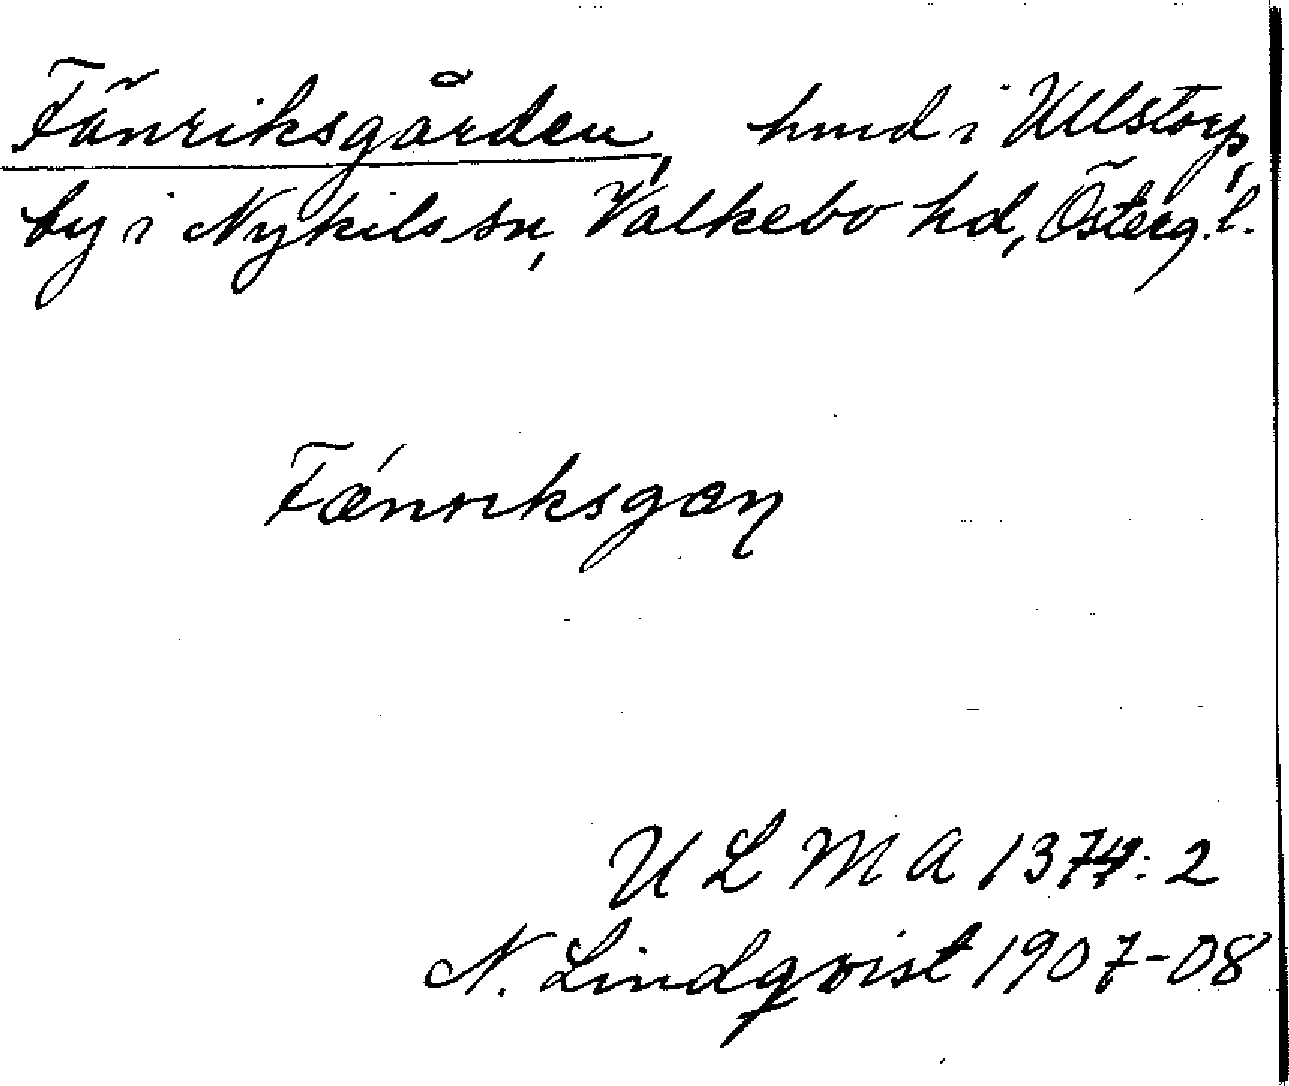 Fänriksgården, hmd i Ullstorp,
by i Nykils sn, Valkebo hd, Östergl.
Fǽnriksgɑŋ
U L M A 1374:2
N. Lindqvist 1907-08